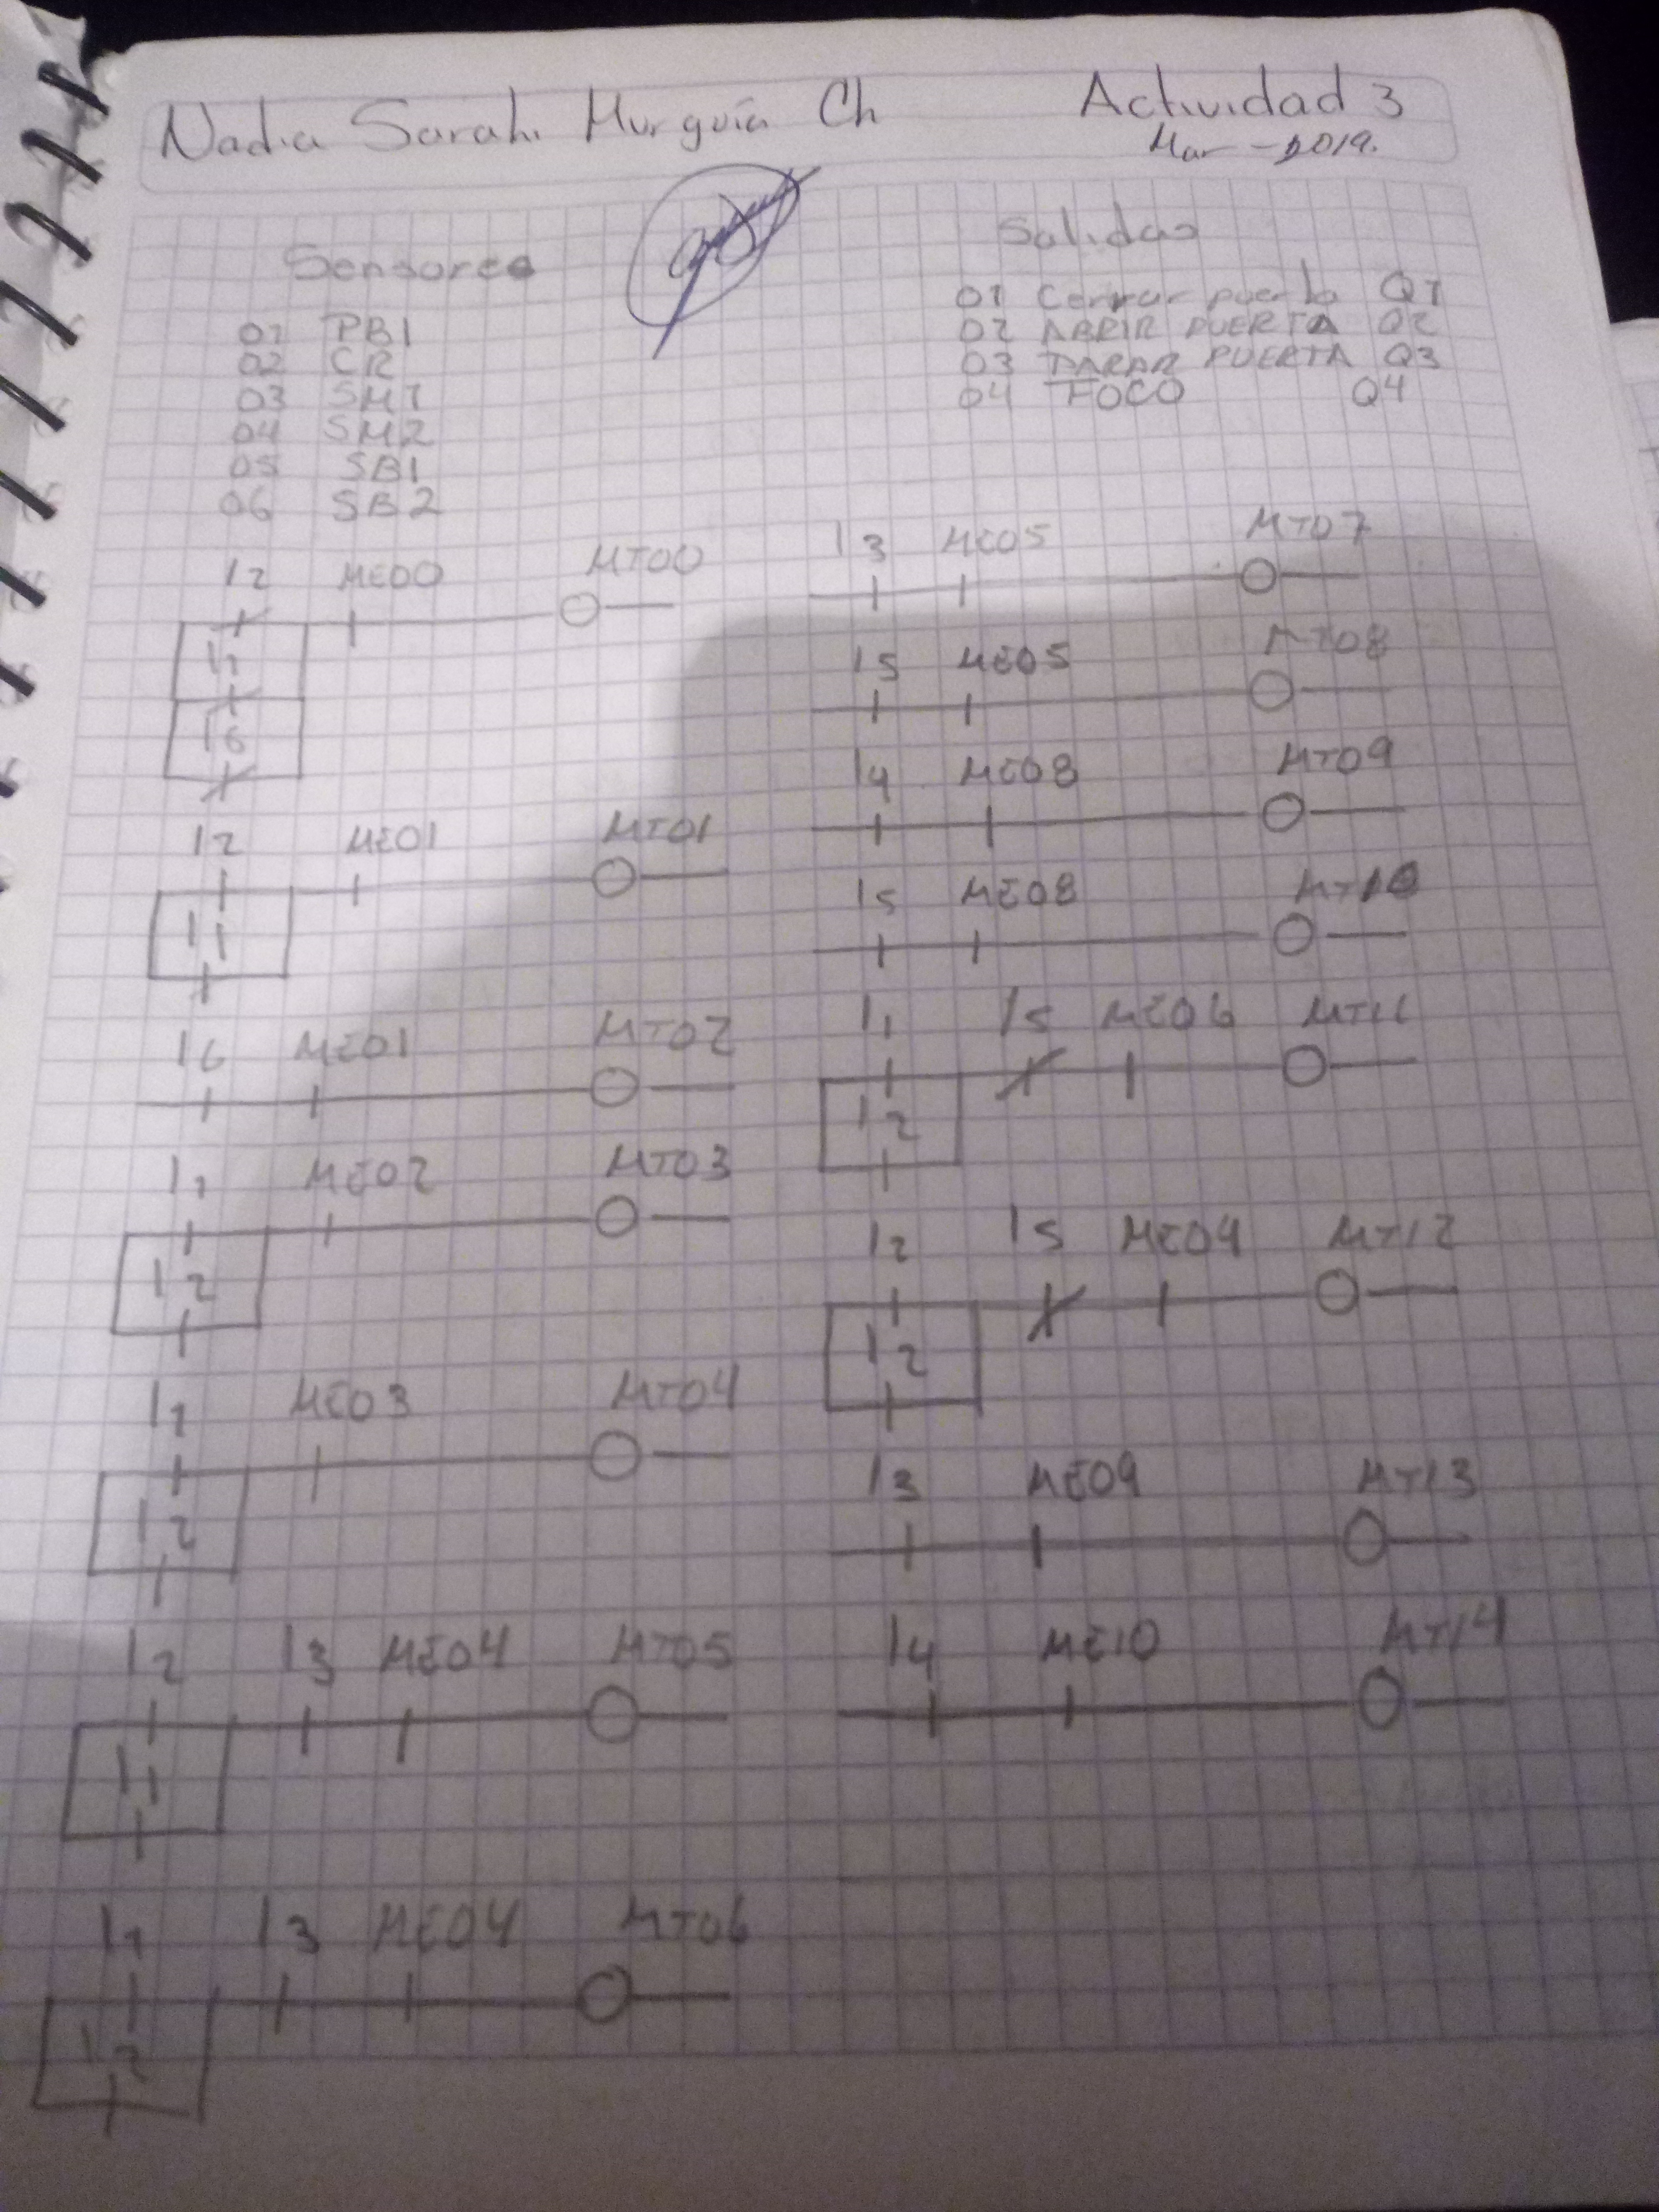 Nadia Sarahi Murguía Ch
Actividad 3
Mar - 2019.
Sensores
01 PB1
02 CR
03 SM1
04 SM2
05 SB1
06 SB2
Salidas
01 Cerrar puerta Q1
02 ABRIR PUERTA Q2
03 PARAR PUERTA Q3
04 FOCO Q4
I2 ME00 MT00
I1
I6
I2 ME01 MT01
I1
I6 ME01 MT02
I1 ME02 MT03
I2
I1 ME03 MT04
I2
I2 I3 ME04 MT05
I1
I1 I3 ME04 MT06
I2
I3 ME05 MT07
I5 ME05 MT08
I4 ME08 MT09
I5 ME08 MT10
I1 I5 ME06 MT11
I2
I2 I5 ME04 MT12
I2
I3 ME09 MT13
I4 ME10 MT14